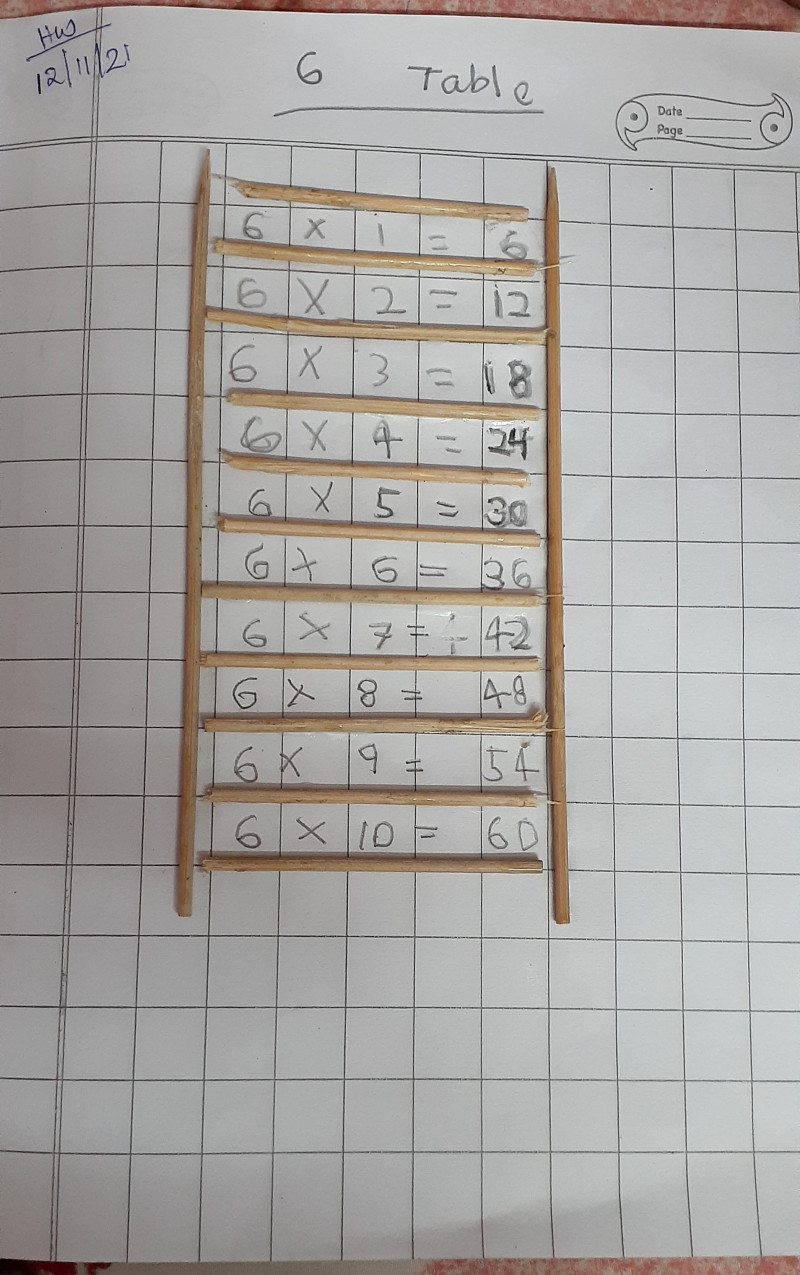 HW
12/11/21
6 Table
Date
Page
6 x 1 = 6
6 X 2 = 12
6 X 3 = 18
6 X 4 = 24
6 X 5 = 30
6 x 6 = 36
6 x 7 = 42
6 x 8 = 48
6 x 9 = 54
6 x 10 = 60